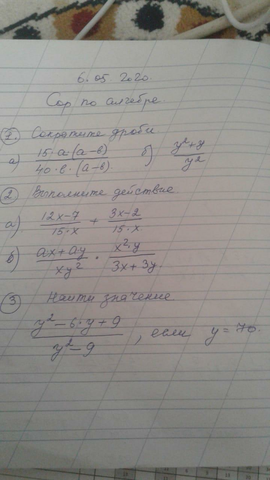 6.05 2020
Сор по алгебре
① Сократите дроби
а) 15·a·(a-b)/40·b·(a-b) б) y²+y/y²
② Выполните действие
а) 12x-7/15·x + 3x-2/15·x
в) ax+ay/xy² · x²·y/3x+3y
③ Найти значение
y²-6·y+9/y²-9, если y = 70.